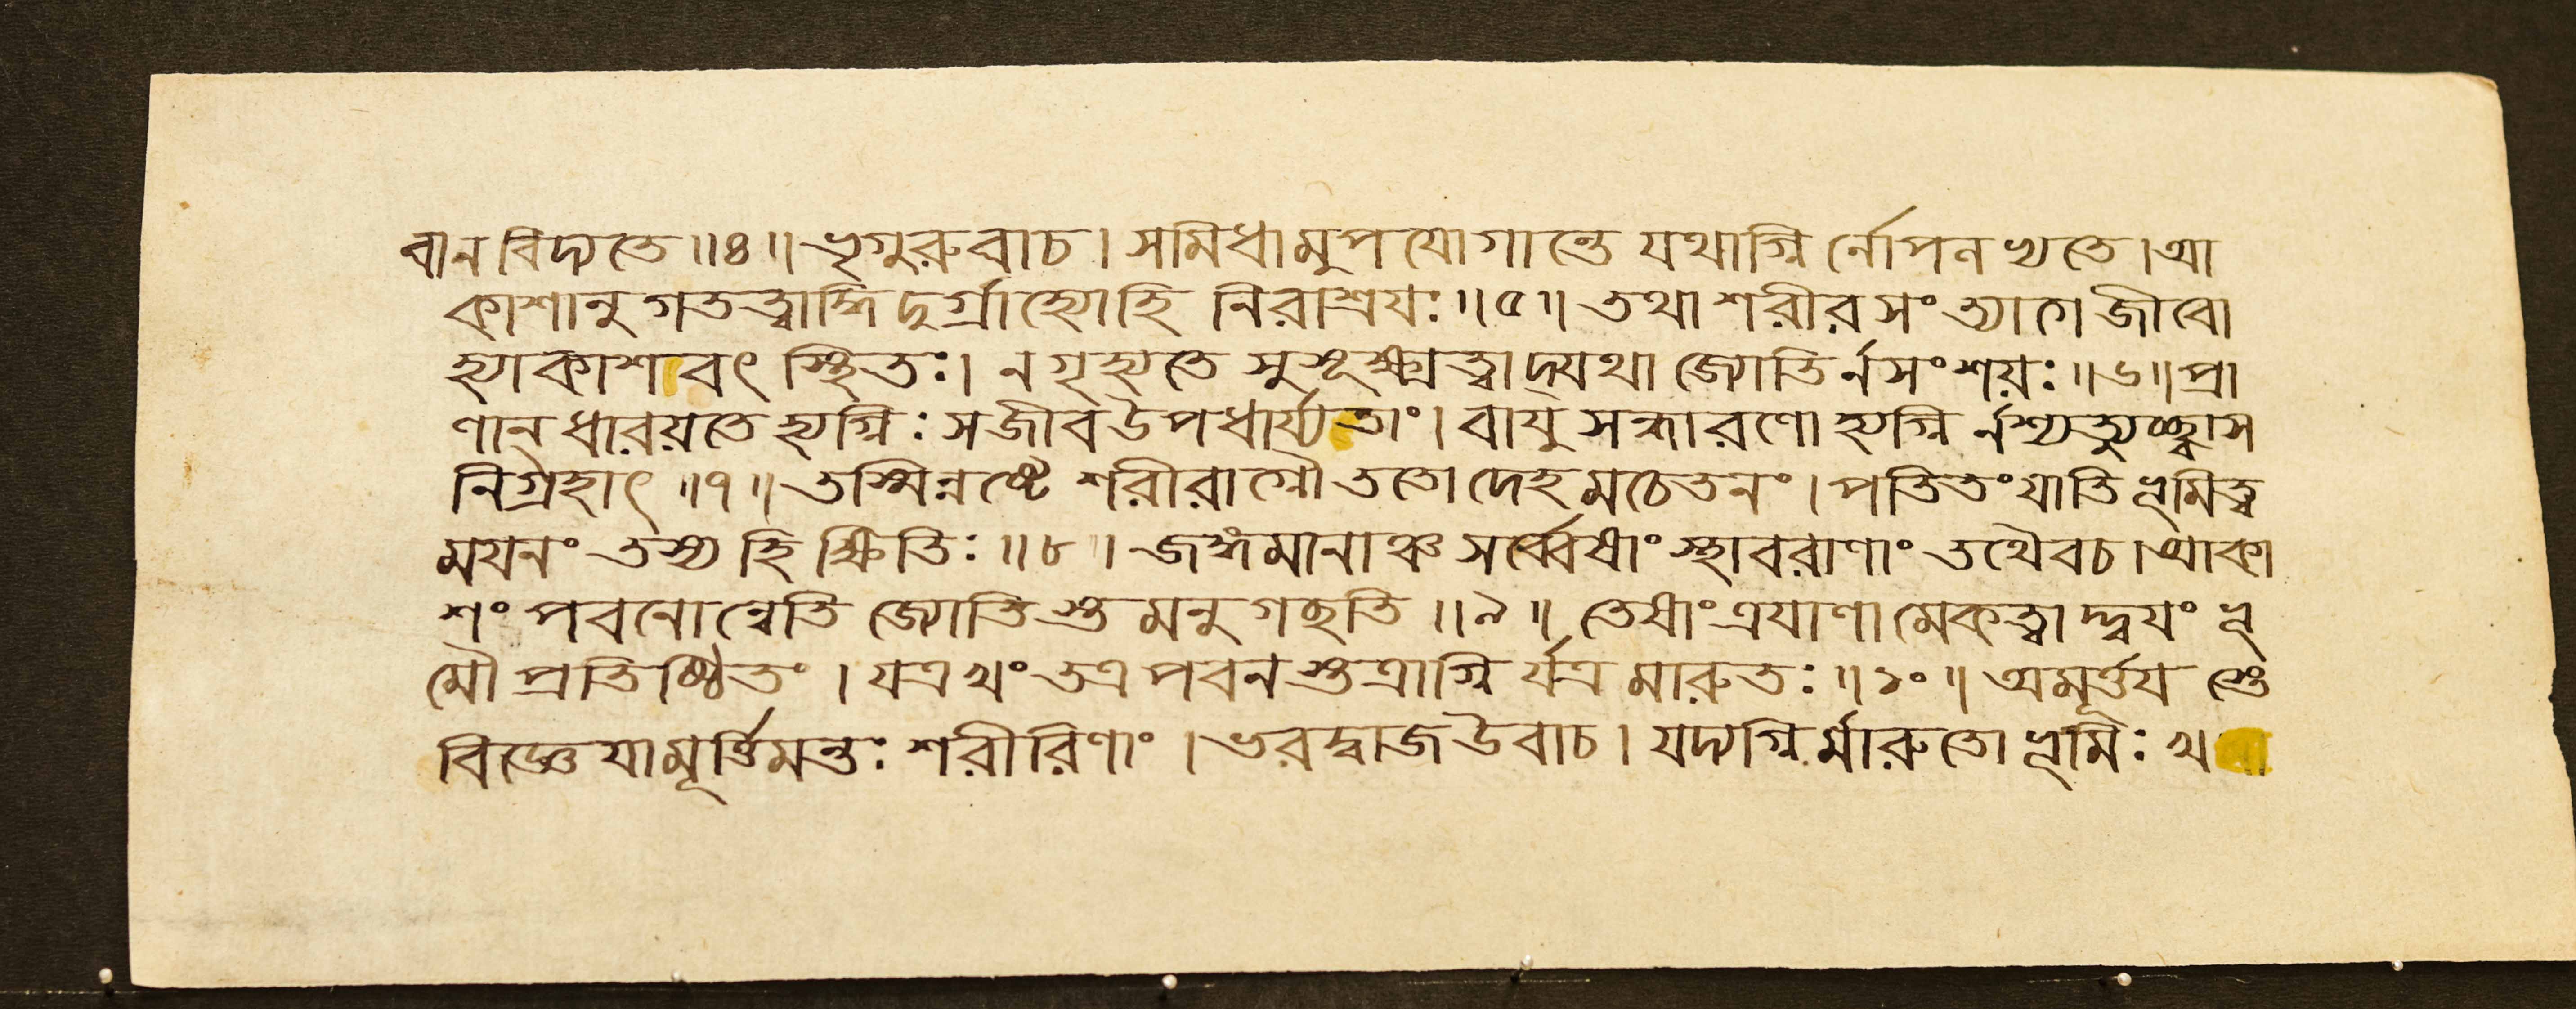 বান বিদ্যতে॥৪॥ ভৃগুরুবাচ। সমিধামুপযোগান্তে যথাগ্নির্নোপলভ্যতে।আ
কাশানুগতত্বাদ্ধি দুর্গ্রাহ্যোহি নিরাশ্রযঃ॥৫॥ তথা শরীরসংত্যাগে জীবো
হ্যাকাশবৎ স্থিতঃ। নগৃহ্যতে সুসূক্ষ্মত্বাদ্যথা জ্যোতির্নসংশয়ঃ॥৬॥প্রা
ণান্ ধারয়তে হ্যগ্নিঃ সজীব উপধার্য্যতাং। বায়ুসন্ধারণো হ্যগ্নির্নশ্যত্যুচ্ছ্বাস
নিগ্রহাৎ॥৭॥ তস্মিন্নষ্টে শরীরাগ্নৌ ততো দেহমচেতনং। পতিতং যাতি ভূমিত্ব
ময়নং তস্য হি ক্ষিতিঃ॥৮॥ জঙ্গমানাঞ্চ সর্ব্বেষাং স্থাবরাণাং তথৈবচ।আকা
শং পবনোন্বেতি জ্যোতিস্তমনুগছতি॥৯॥ তেষাং ত্রযাণামেকত্বাদ্দ্বযং ভূ
মৌ প্রতিষ্ঠিতং। যত্র খং তত্র পবনস্তত্রাগ্নির্যত্র মারুতঃ॥১০॥ অমূর্ত্তয স্তে
বিজ্ঞেযামূর্ত্তিমন্তঃ শরীরিণাং। ভরদ্বাজ উবাচ। যদ্যগ্নির্ম্মারুতো ভূমিঃ খ